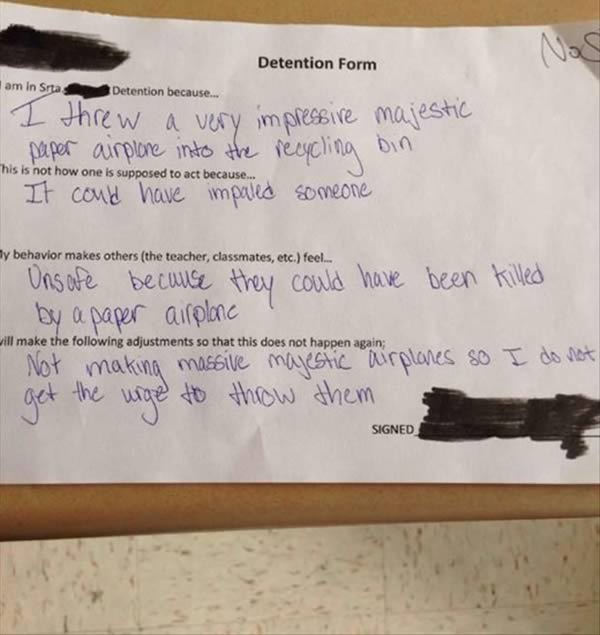 Detention Form
I am in Srta. Detention because...
I threw a very impressive majestic
paper airplane into the recycling bin
his is not how one is supposed to act because...
It could have impaled someone
y behavior makes others (the teacher, classmates, etc.) feel...
Unsafe because they could have been killed
by a paper airplane
will make the following adjustments so that this does not happen again;
Not making massive majestic airplanes so I do not
get the urge to throw them
SIGNED